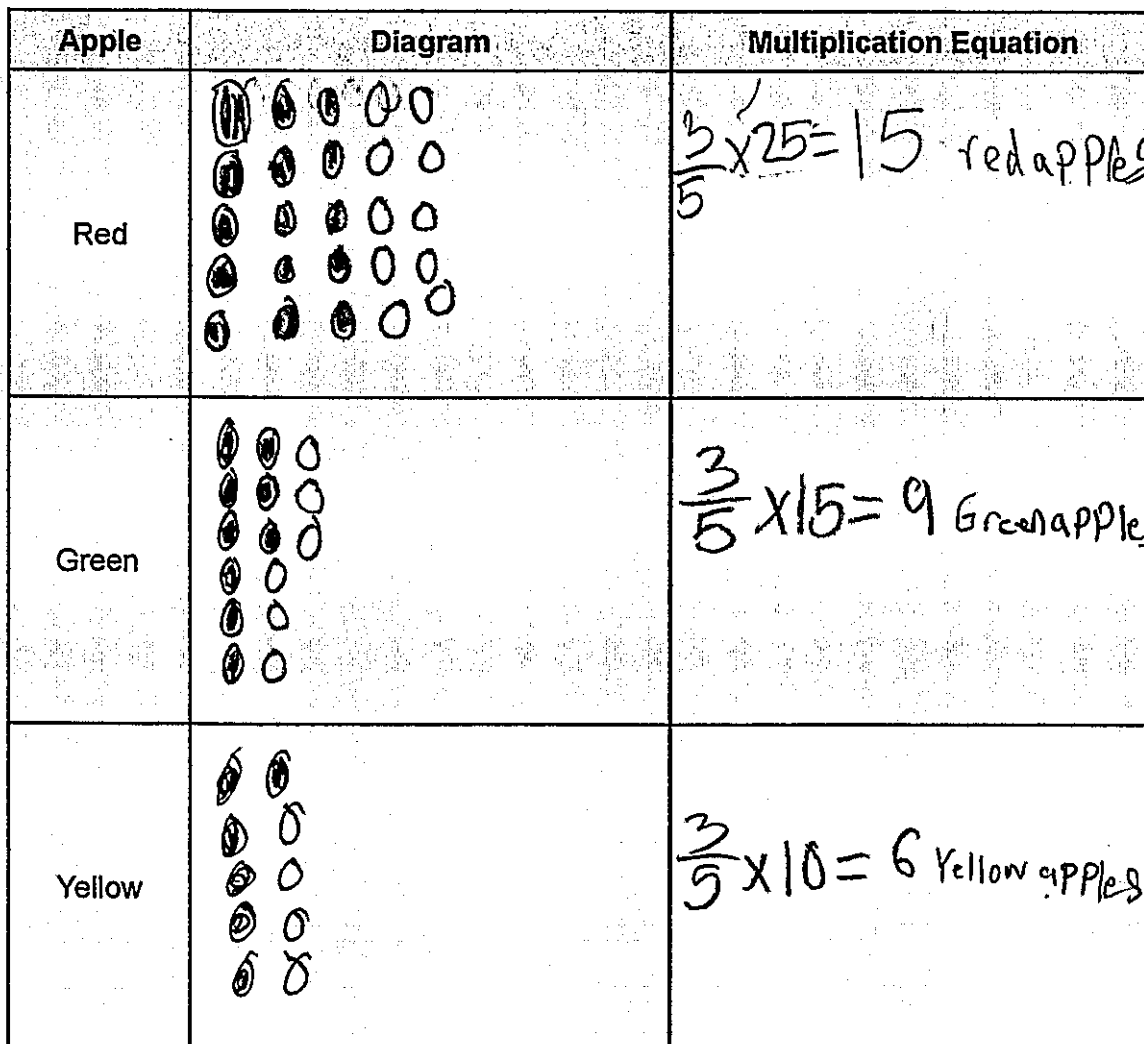 Apple Diagram Multiplication Equation
Red 3/5 x 25 = 15 red apples
Green 3/5 x 15 = 9 Green apples
Yellow 3/5 x 10 = 6 Yellow apples